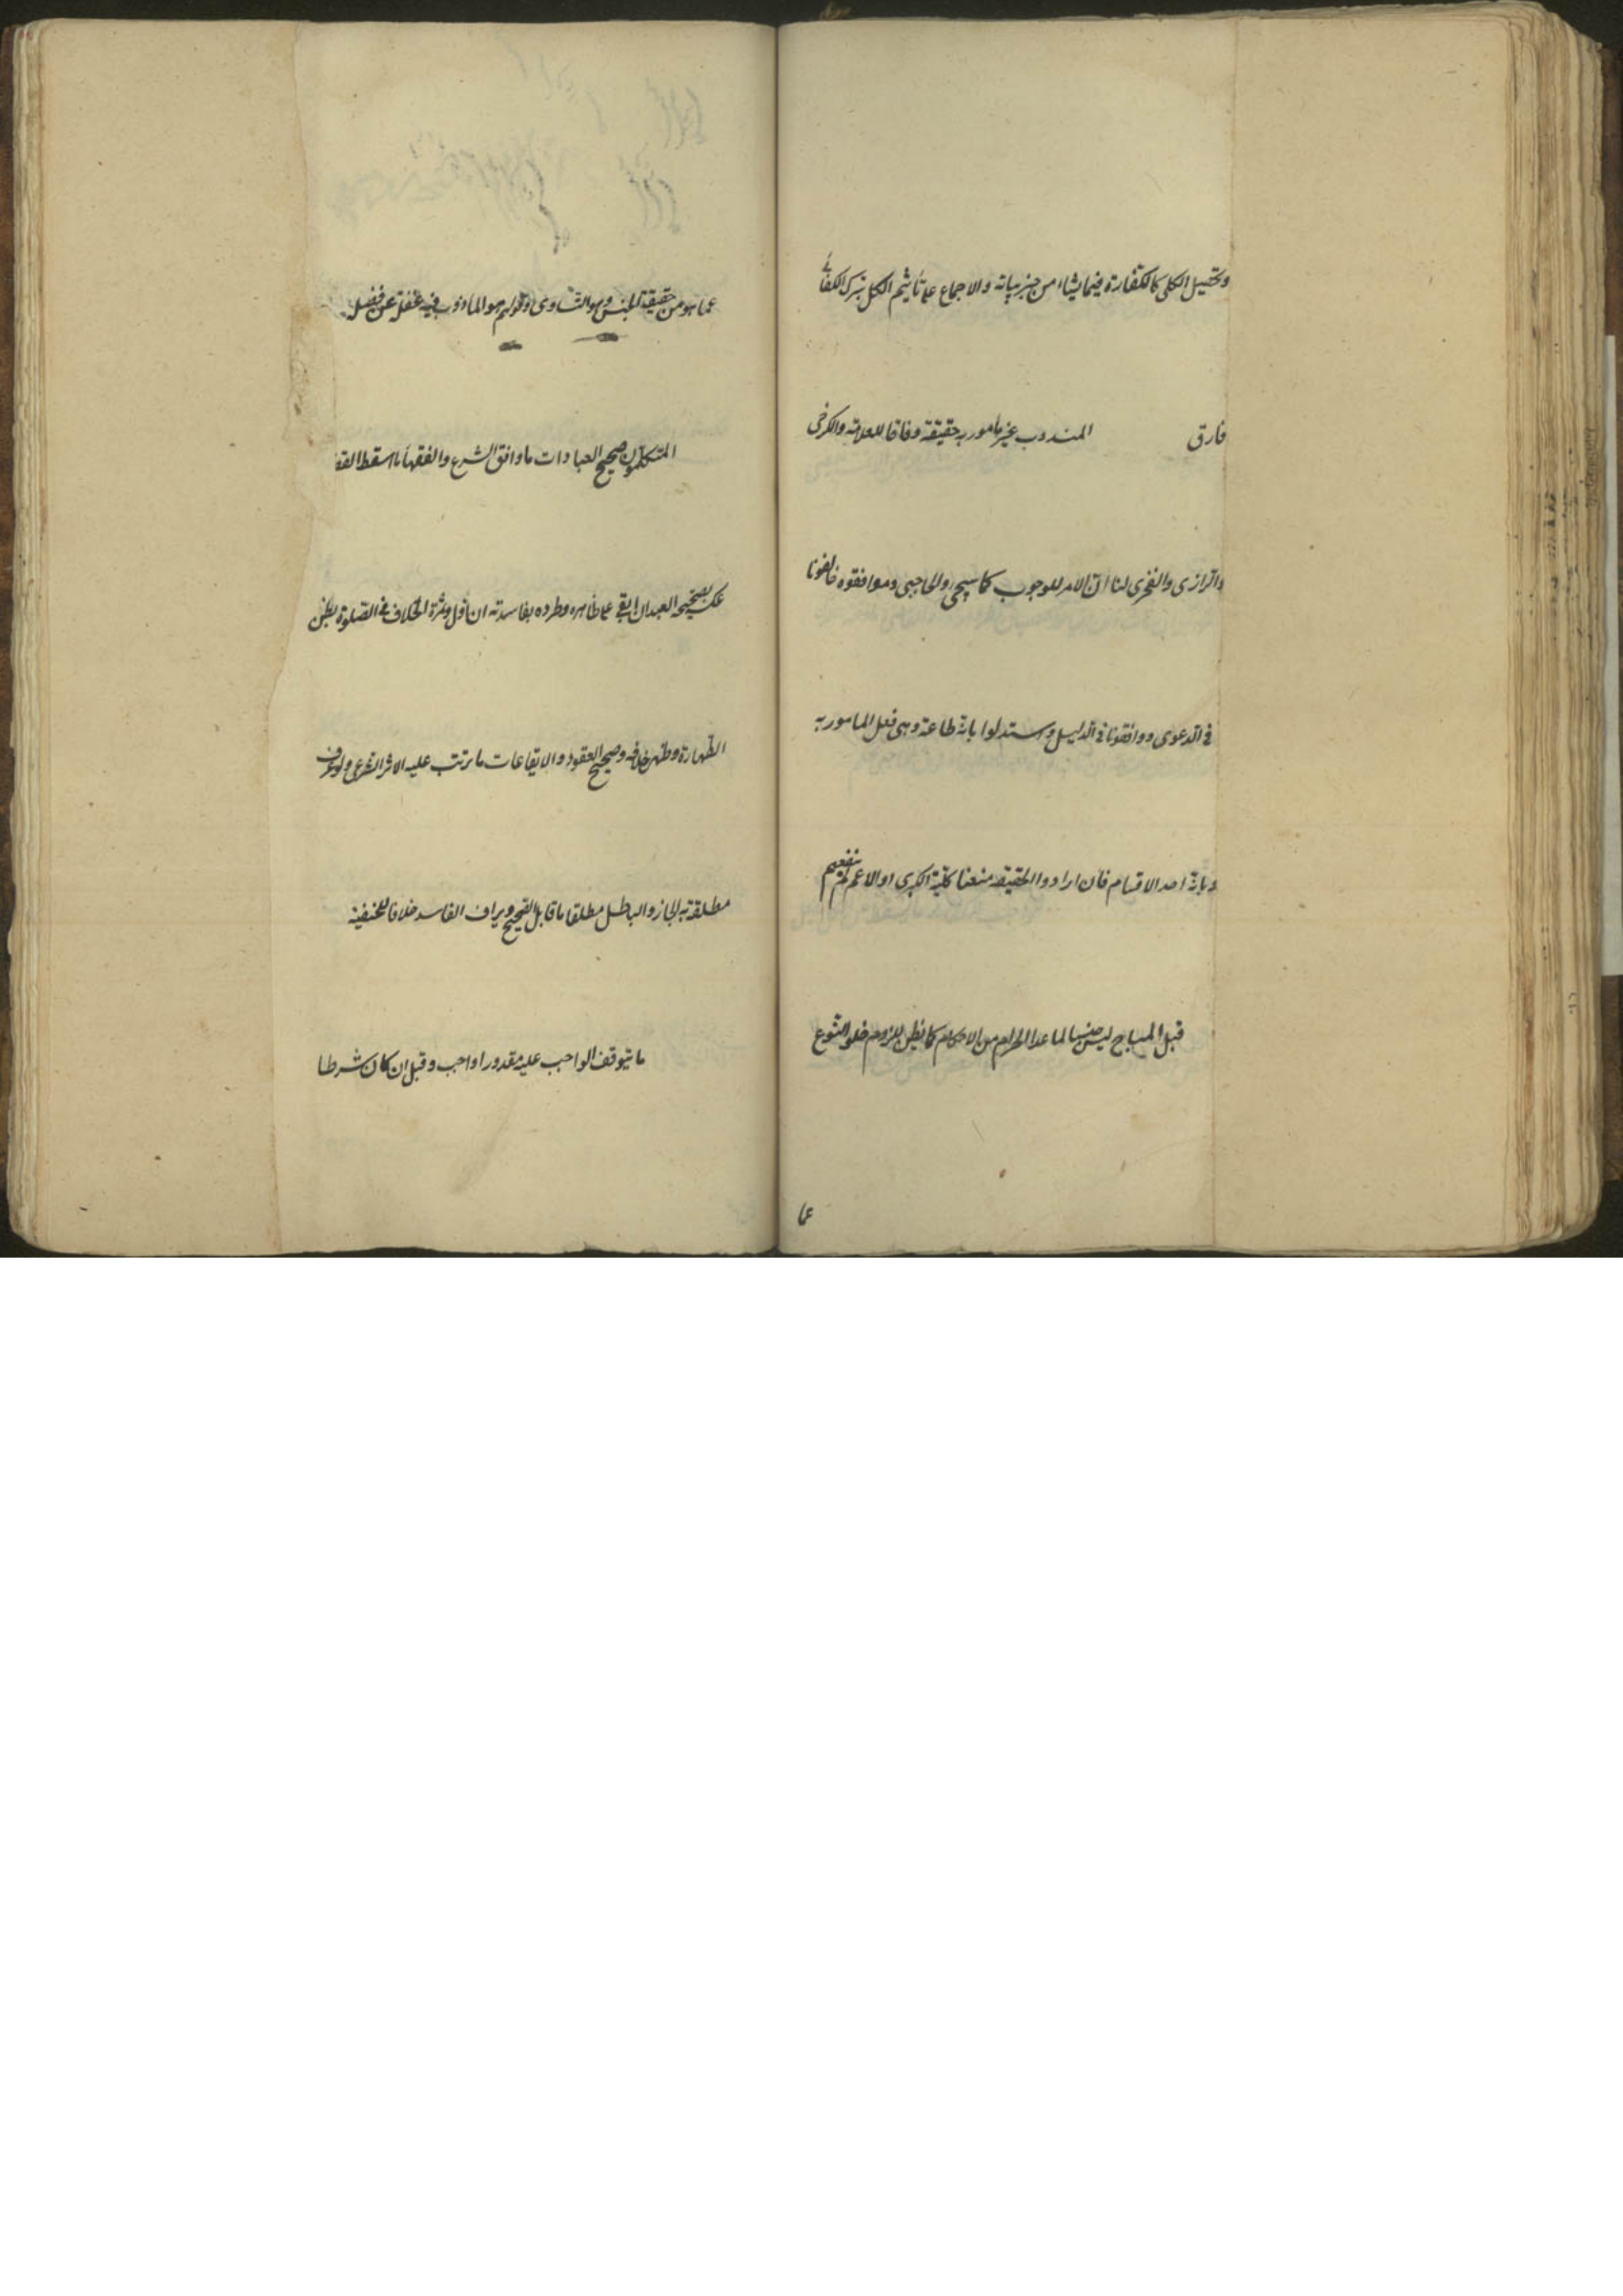 وتحصيل الكلي كالكفارة فيما يشاء من جزئياته والاجماع على تأثيم الكل بترك الكفائي
فارق المندوب غير مأمور به حقيقة وفاقا للعلامة والكرخي
والرازي والفخري لنا ان الامر للوجوب كما سيجئ والحاجبي وموافقوه خالفونا
في الدعوى ووافقونا في الدليل واستدلوا بانه طاعة وهي فعل المامور به
وبانه احد الاقسام فان ارادوا الحقيقة منعنا كلية الكبرى او الاعم لم ينفعهم
قيل المباح ليس جنسا لما عدا الحرام من الاحكام كما يظن للزوم خلو النوع
عما
عما هو من حقيقة الجنس وهو التساوي وقولهم هو الماذون فيه غفلة عن فصله
المتكلمون صحيح العبادات ما وافق الشرع والفقهاء ما اسقط القضا
عكسه بصحيحة العيدان ابقي على ظاهره وطرده بفاسدته ان اول وثمرة الخلاف في الصلوة بظن
الطهارة وظهر خلافه وصحيح العقود والايقاعات ما ترتب عليه الاثر الشرعي ولو عرف
مطلقه به لجاز والباطل مطلقا ما قابل الصحيح ويرادف الفاسد خلافا للحنفية
ما يتوقف الواجب عليه مقدورا واجب وقيل ان كان شرطا